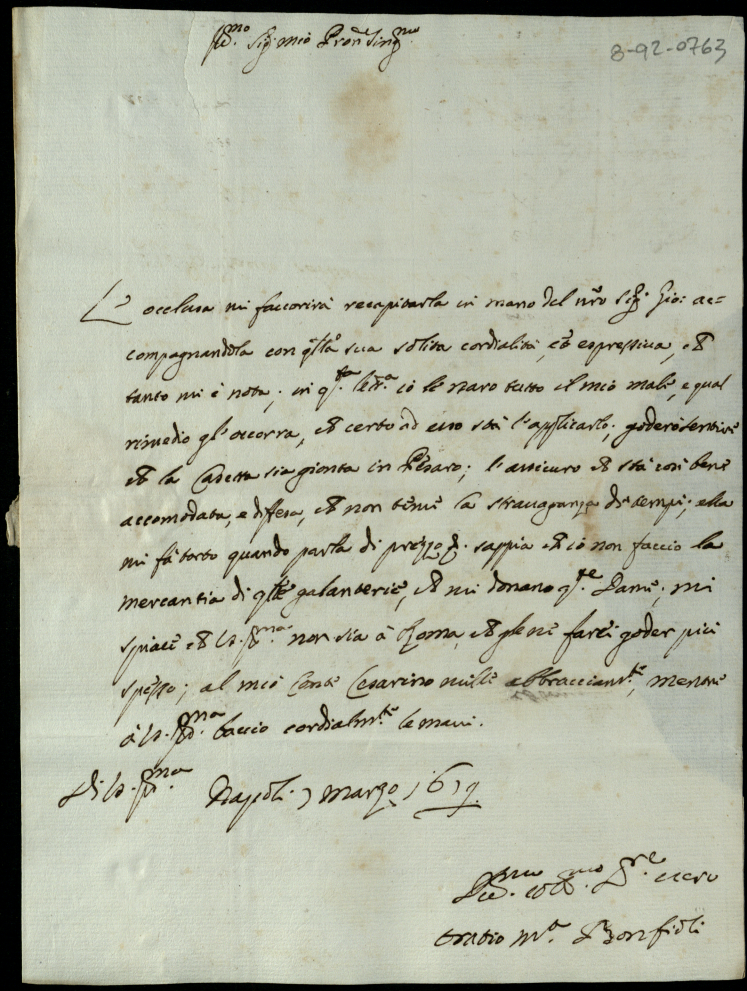 Ill.mo Sig.r mio Pron Sing.mo
8-92-0763
L'occlusa mi favorirà recapitarla in mano del nr̃o Sig.r Gio: ac=
compagnandola con q̃lla sua solita cordialità, et espressiva, ch
tanto mi è nota; in q.sta lett.a io le naro tutto il mio male, e qual
rimedio gl'occorra, ch certo ad esso stà l'applicarlo; goderò sentire
ch la Casetta sia gionta in Pesaro; l'assicuro ch stà così bene
accomodata, e difesa, ch non teme la stravaganza di tempi; ella
mi fà torto quando parla di prezzo, sappia ch io non faccio la
mercantia di q̃lle galanterie, ch mi donano q.ste Dame; mi
spiace ch V.S. Ill.ma non sia à Roma, ch gle ne farei goder più
spesso; al mio Conte Cesarino mille abbracciam.ti, mentre
à V.S. Ill.ma baccio cordialm.te le mani.
Di V.S. Ill.ma Napoli 7 marzo 1619
Dev.mo et Obl.mo S.re vero
Oratio M.a Bonfioli